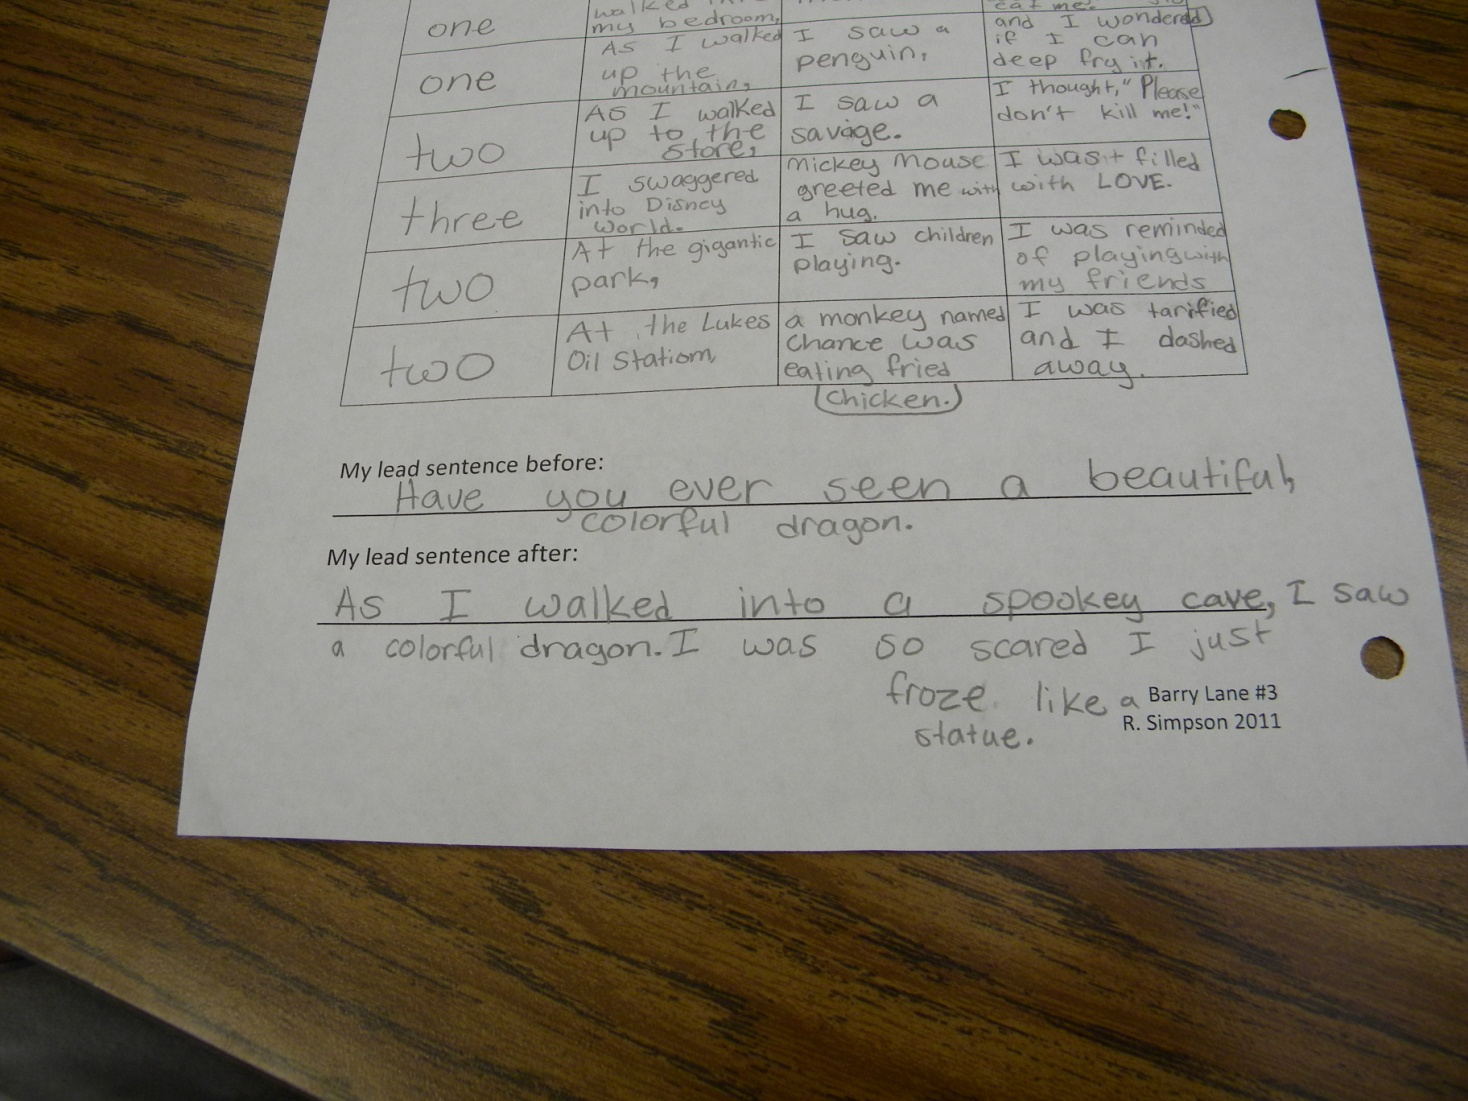 one
walked
my bedroom,
eat me.
and I wondered
one
As I walked
up the
mountain,
I saw a
penguin,
if I can
deep fry it.
two
As I walked
up to the
store,
I saw a
savage.
I thought, "Please
don't kill me!"
three
I swaggered
into Disney
World.
Mickey Mouse
greeted me with
a hug.
I was filled
with LOVE.
two
At the gigantic
park,
I saw children
playing.
I was reminded
of playing with
my friends
two
At the Lukes
Oil Station,
a monkey named
Chance was
eating fried
chicken.
I was tarified
and I dashed
away.
My lead sentence before:
Have you ever seen a beautiful,
colorful dragon.
My lead sentence after:
As I walked into a spookey cave, I saw
a colorful dragon. I was so scared I just
froze like a
statue.
Barry Lane #3
R. Simpson 2011